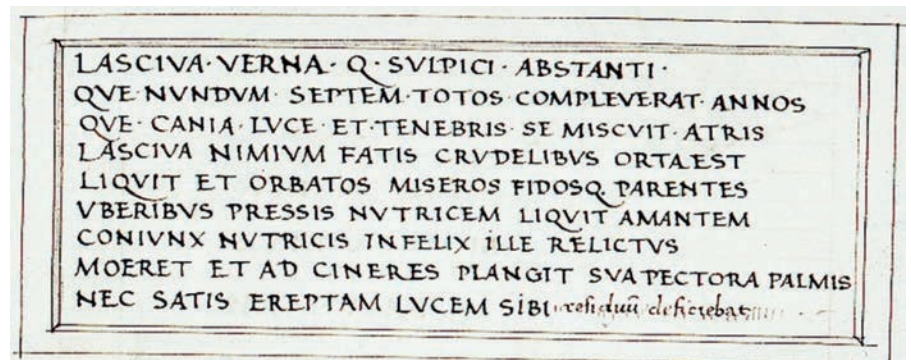 LASCIVA · VERNA · Q · SVLPICI · ABSTANTI ·
QVE · NVNDVM · SEPTEM · TOTOS · COMPLEVERAT · ANNOS
QVE · CANIA · LVCE · ET · TENEBRIS · SE MISCVIT · ATRIS
LASCIVA NIMIVM FATIS CRVDELIBVS ORTAEST
LIQVIT ET ORBATOS MISEROS FIDOSQ. PARENTES
VBERIBVS PRESSIS NVTRICEM LIQVIT AMANTEM
CONIVNX NVTRICIS INFELIX ILLE RELICTVS
MOERET ET AD CINERES PLANGIT SVA PECTORA PALMIS
NEC SATIS EREPTAM LVCEM SIBI residuū deficiebat